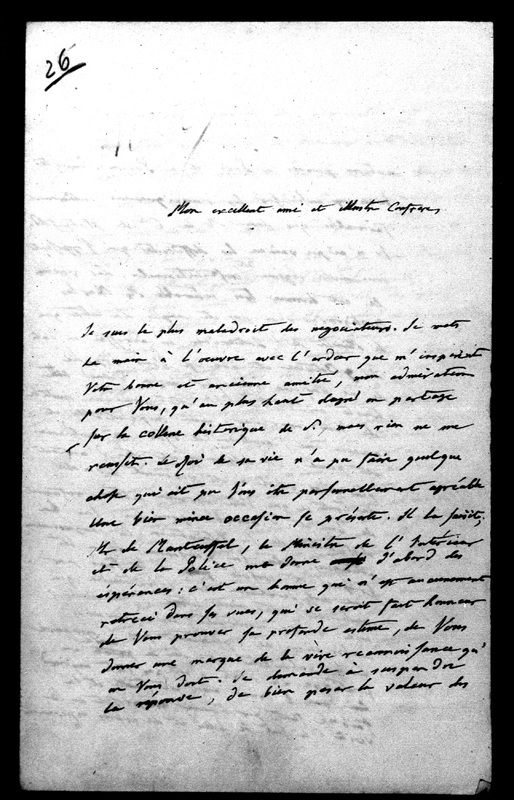 26
Mon excellent ami et illustre Confrère,
Je suis le plus maladroit des negociateurs. Je mets
la main à l'œuvre avec l'ardeur que m'inspirent
Votre bonne et ancienne amitié, mon admiration
pour Vous, qu'au plus haut degré on partage
sur la colline historique de S., mais rien ne me
reussit. Le Roi de sa vie n'a pu faire quelque
chose qui ait pu Vous être personnellement agréable
Une bien mince occasion se présente. Il la saisit,
Mr de Manteuffel, le Ministre de l'Interieur
et de la Police me donne d'abord des
espérances: c'est un homme qui n'est aucunement
retreci dans ses vues, qui se seroit fait honneur
de Vous prouver sa profonde estime, de Vous
donner une marque de la vive reconnoissance qu'
on Vous doit. Je demande à suspendre
la réponse, de bien peser la valeur des